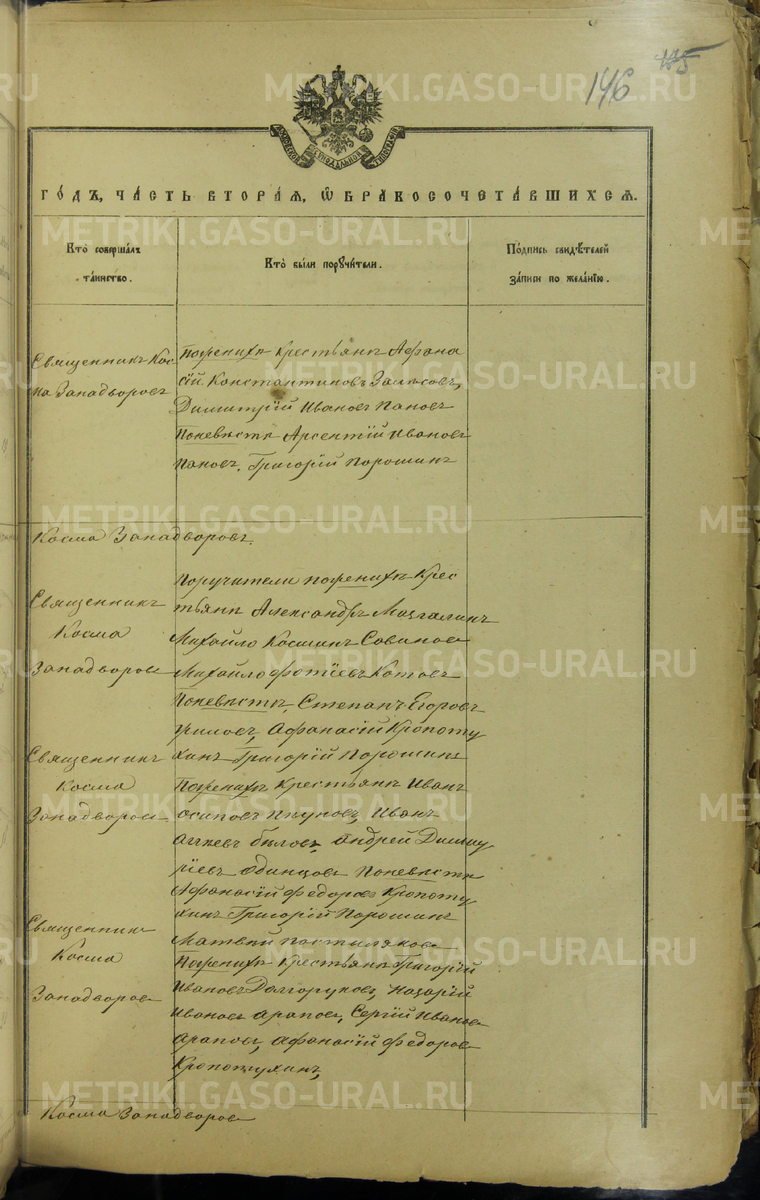 146
175
МОСКОВСКОЙ СѴНОДАЛЬНОЙ ТИПОГРАФІИ
ГО́ДЪ, ЧА́СТЬ ВТОРА́Я, Ѡ҆ БРАКОСОЧЕТА́ВШИХСЯ.
Кто̀ соверша́лъ та́инство.
Кто̀ бы́ли порꙋчи́тели.
По́дпись свидѣ́телей за́писи по жела́нїю.
Священникъ Кос
ма Западворовъ
Поженихѣ Крестьянѣ Афана
сій Константиновъ
Димитрій Ивановъ Пановъ
Поневѣстѣ Арсентій Ивановъ
Пановъ, Григорій Порошинъ
Косма Западворовъ.
Священникъ
Косма
Западворовъ
Поручители поженихѣ Крес
тьянѣ Александръ Мазгалинъ
Михайло Косминъ Савинов
Михайло Фотіевъ Котовъ
Поневѣстѣ, Степанъ Егоровъ
Афанасій Кропоту
хинъ Григорій Порошинъ
Священникъ
Косма
Западворовъ
Поженихѣ Крестьянѣ Иванъ
Осиповъ Иванъ
бѣловъ, Андрей Димит
ріевъ Одинцовъ Поневѣстѣ
Афанасій Федоровъ Кропоту
хинъ Григорій Порошинъ
Матвѣй Постиляковъ
Священникъ
Косма
Западворовъ
Поженихѣ Крестьянѣ Григорій
Ивановъ Долгоруковъ, Назарій
Ивановъ Араповъ, Сергій Ивановъ
Араповъ, Афанасій Федоровъ
Кропотухинъ,
Косма Западворовъ
METRIKI.GASO-URAL.RU